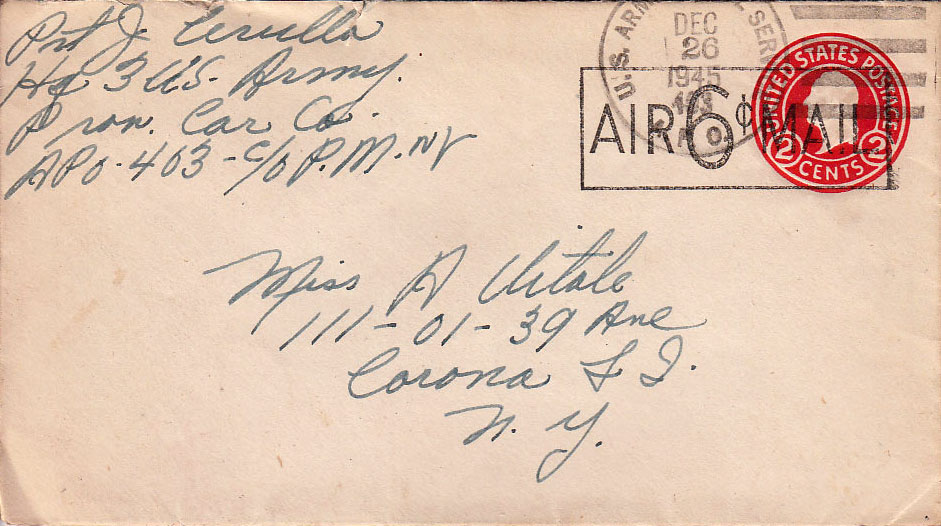 Pvt J. Cirulla
Hq 3 US. Army.
Prov. Car Co.
APO-403-c/o P.M. NY
U.S. ARMY
SER
DEC
26
1945
403
A.P.O.
AIR 6¢ MAIL
UNITED STATES POSTAGE
2 CENTS 2
Miss A Vitale
111-01-39 Ave
Corona L I.
N. Y.